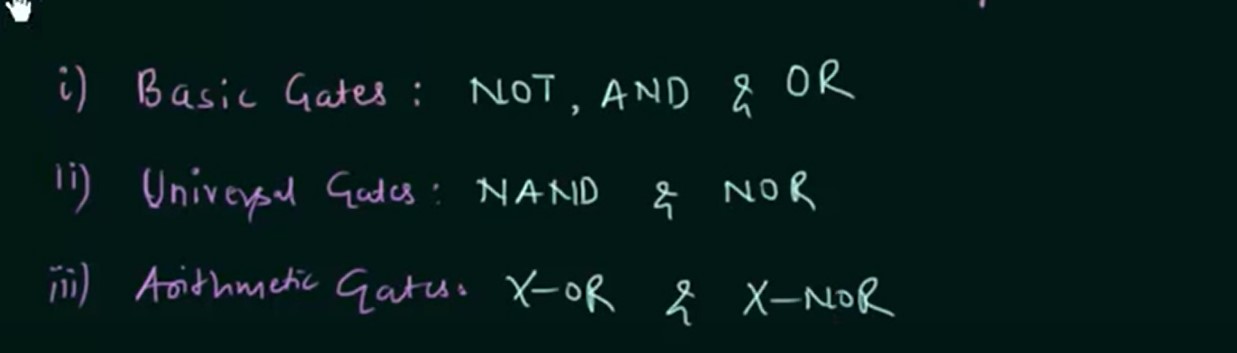 i) Basic Gates : NOT, AND & OR
ii) Universal Gates : NAND & NOR
iii) Arithmetic Gates. X-OR & X-NOR